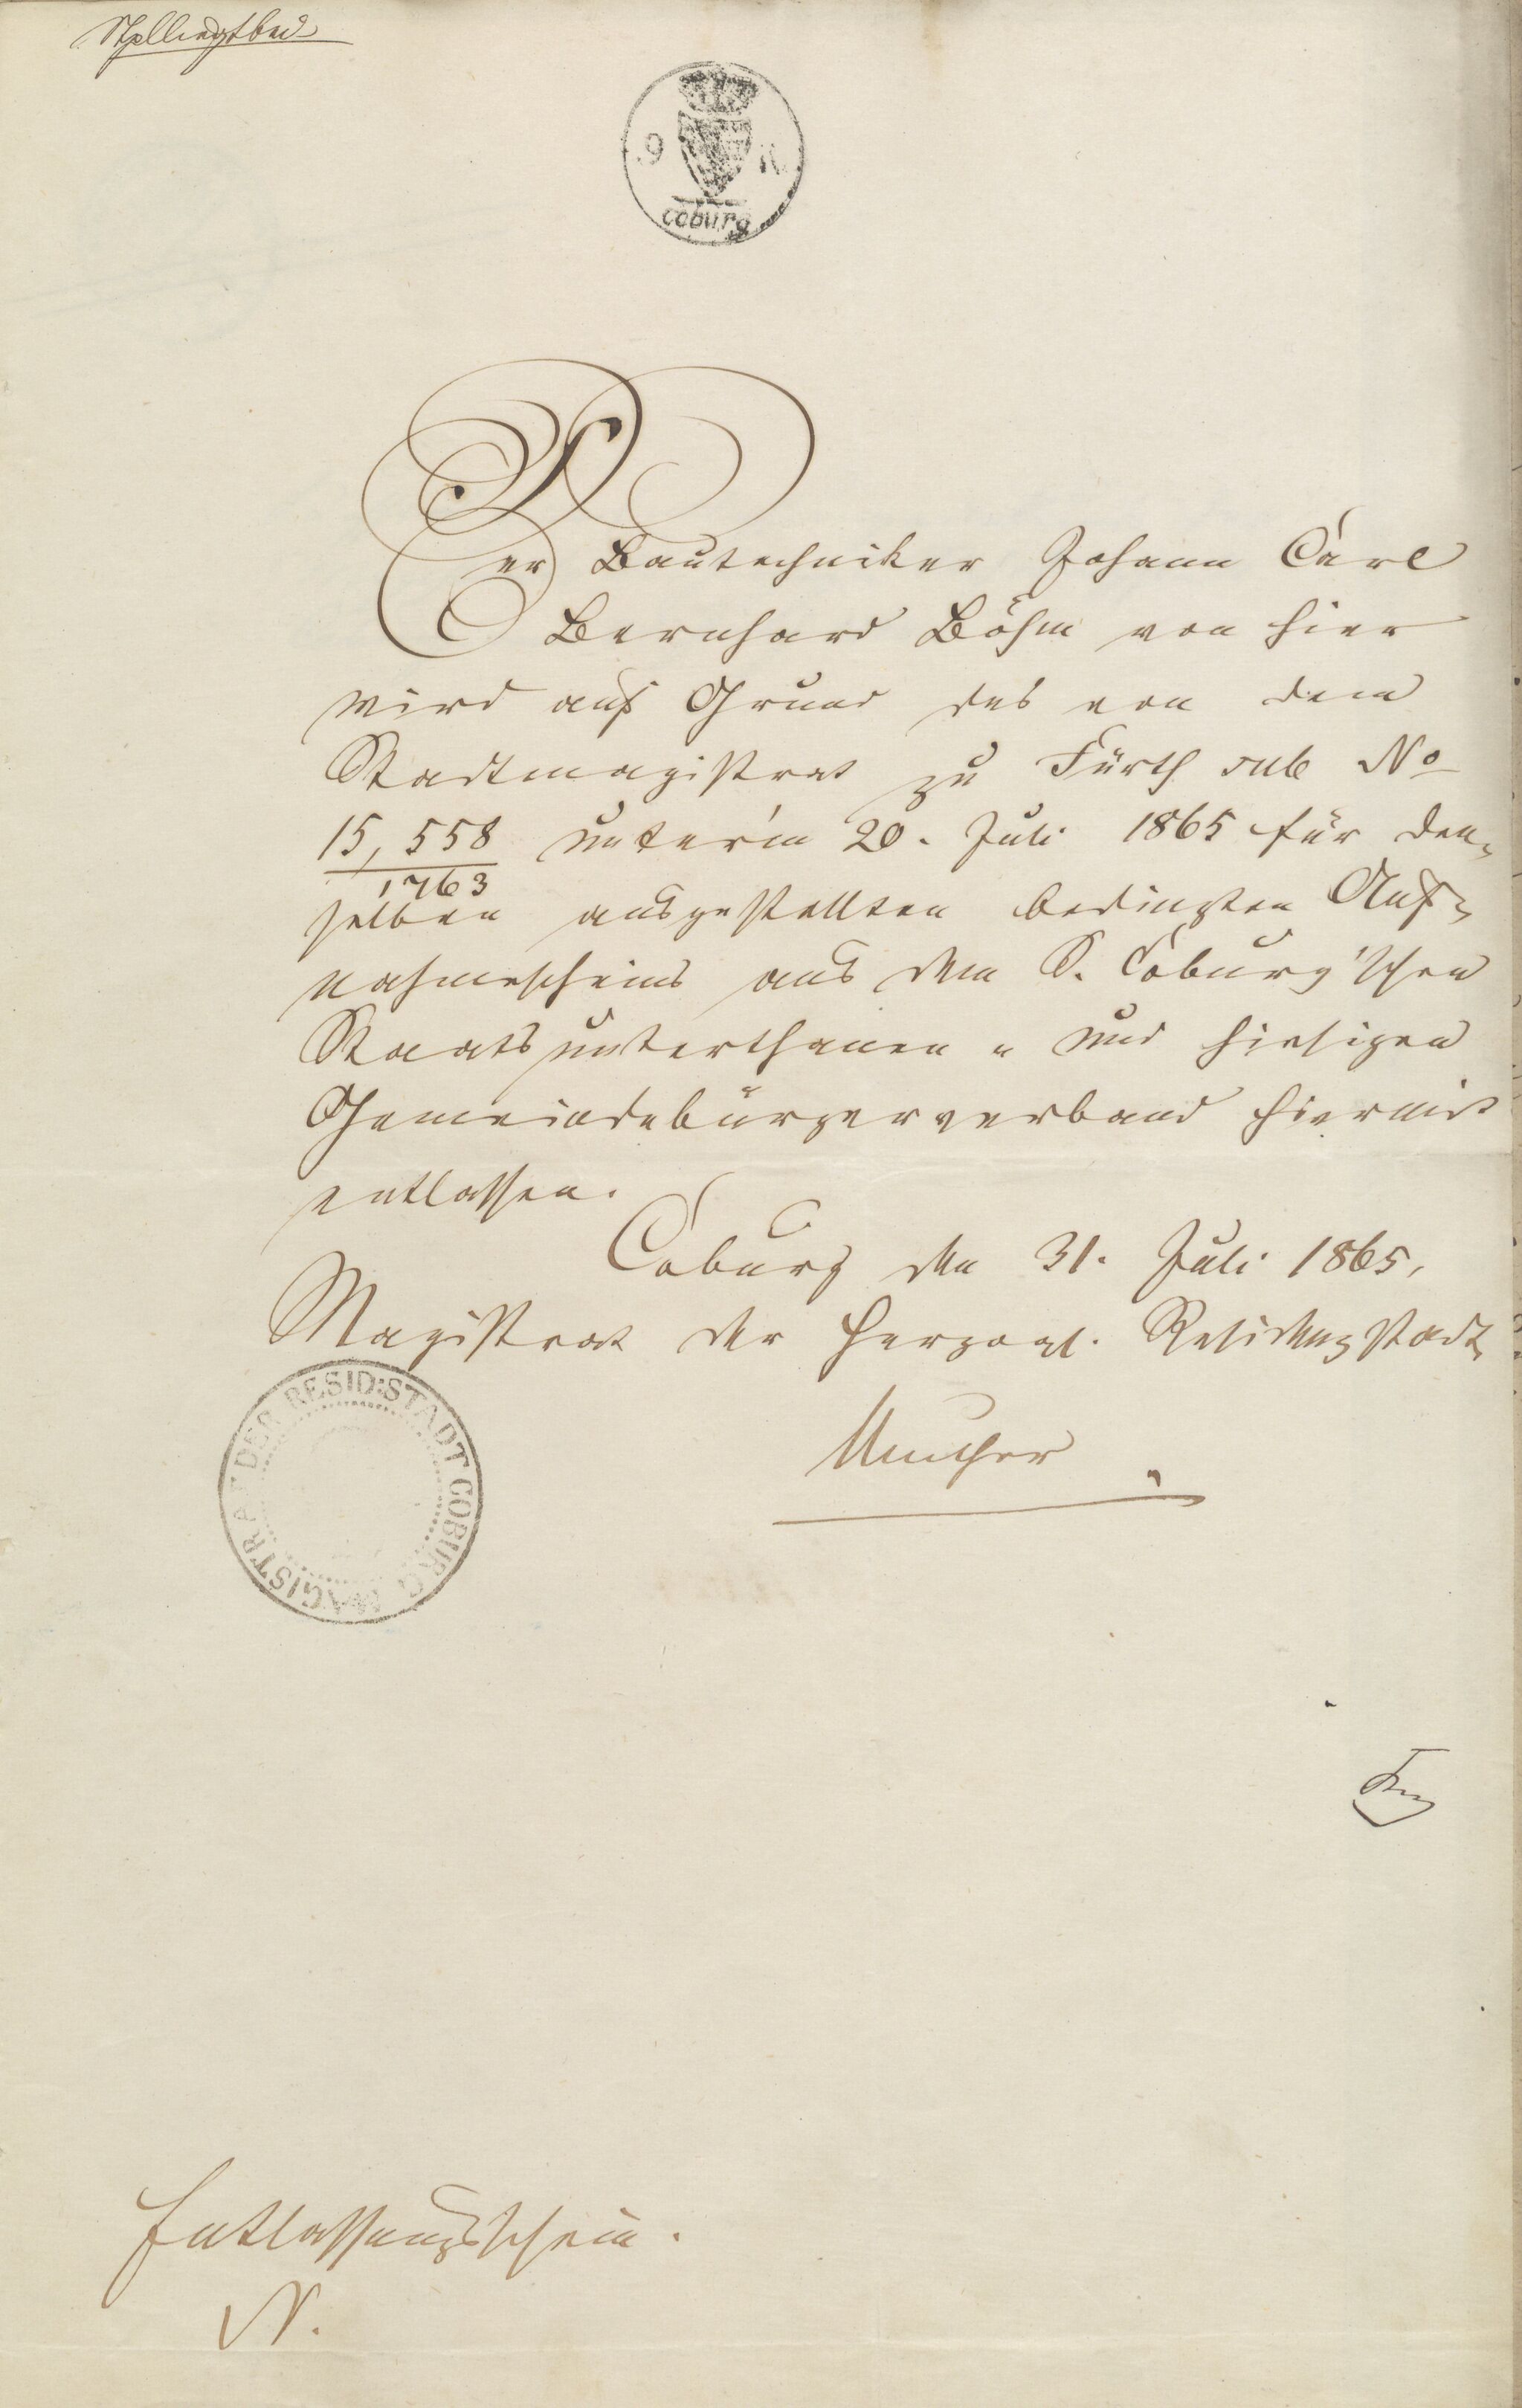 9 K
coburg
Der Bautechniker Johann Carl
Bernhard Böhm von hier
wird auf Grund des von dem
Stadtmagistrat zu Fürth sub No
15,558 unter'm 20. Juli 1865 für den-
1763
selben ausgestellten bedingten Auf-
nahmescheins aus dem S. Coburg'schen
Staatsunterthanen- und hiesigen
Gemeindebürgerverband hiermit
entlassen.
Coburg den 31. Juli 1865.
Magistrat der Herzogl. Residenzstadt
MAGISTRAT DER RESID:STADT COBURG
Muther
Entlassungsschein.
N.